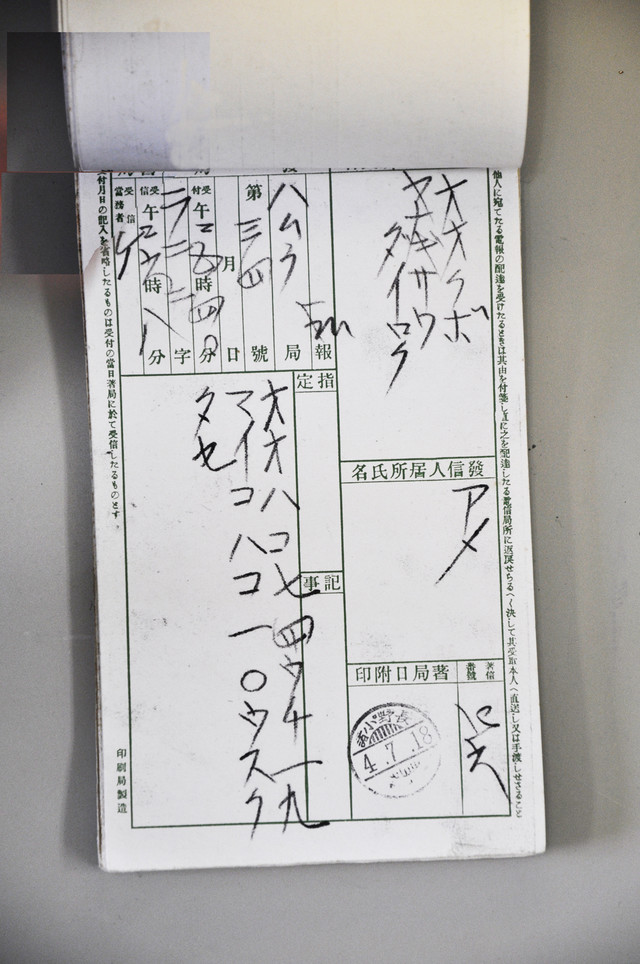 他人に宛てたる電報の配達を受けたるときは其由を付箋し直に之を配達したる電信局所に返戻せらるべく決して其受取本人へ直送し又は手渡しせさること
オオクボ
ヤオキサウ
タイロウ
發信人居所氏名
アメ
著信番號
著局日附印
長野小
4.7.18
報
局
ハムラ
第 三四 號
月 日
受付 午 時 分
字
受信 午 時 八 分
受信當務者 ケ
指定
記事
オオハコ七四ウ十一九
マイコハコ一〇ウスク
タセ
受付月日の記入を省略したるものは受付の當日著局に於て受信したるものとす
印刷局製造